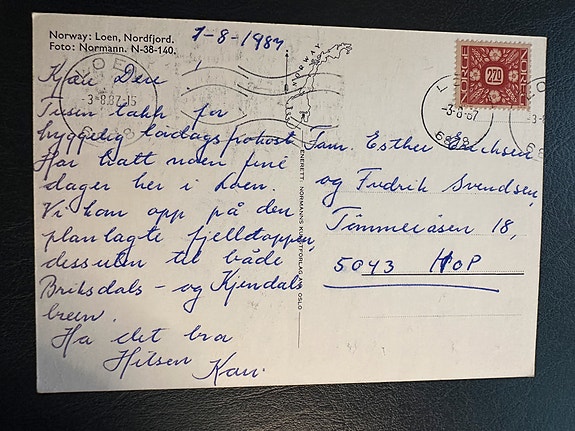 Norway: Loen, Nordfjord.
Foto: Normann. N-38-140.
1-8-1987
Kjære Dere!
Tusen takk for
hyggelig lørdagsfrokost
Har hatt noen fine
dager her i Loen.
Vi kom opp på den
planlagte fjelltoppen,
dessuten til både
Briksdals- og Kjendals
breen.
Ha det bra
Hilsen
Kari.
ENERETT: NORMANNS KUNSTFORLAG A/S, OSLO
NORWAY
LOEN
-3-8.87-15
6878
NOREG
2,70
-3-8-87
6878
Fam. Esther Erichsen
og Fredrik Svendsen,
Tømmeråsen 18,
5043 HOP